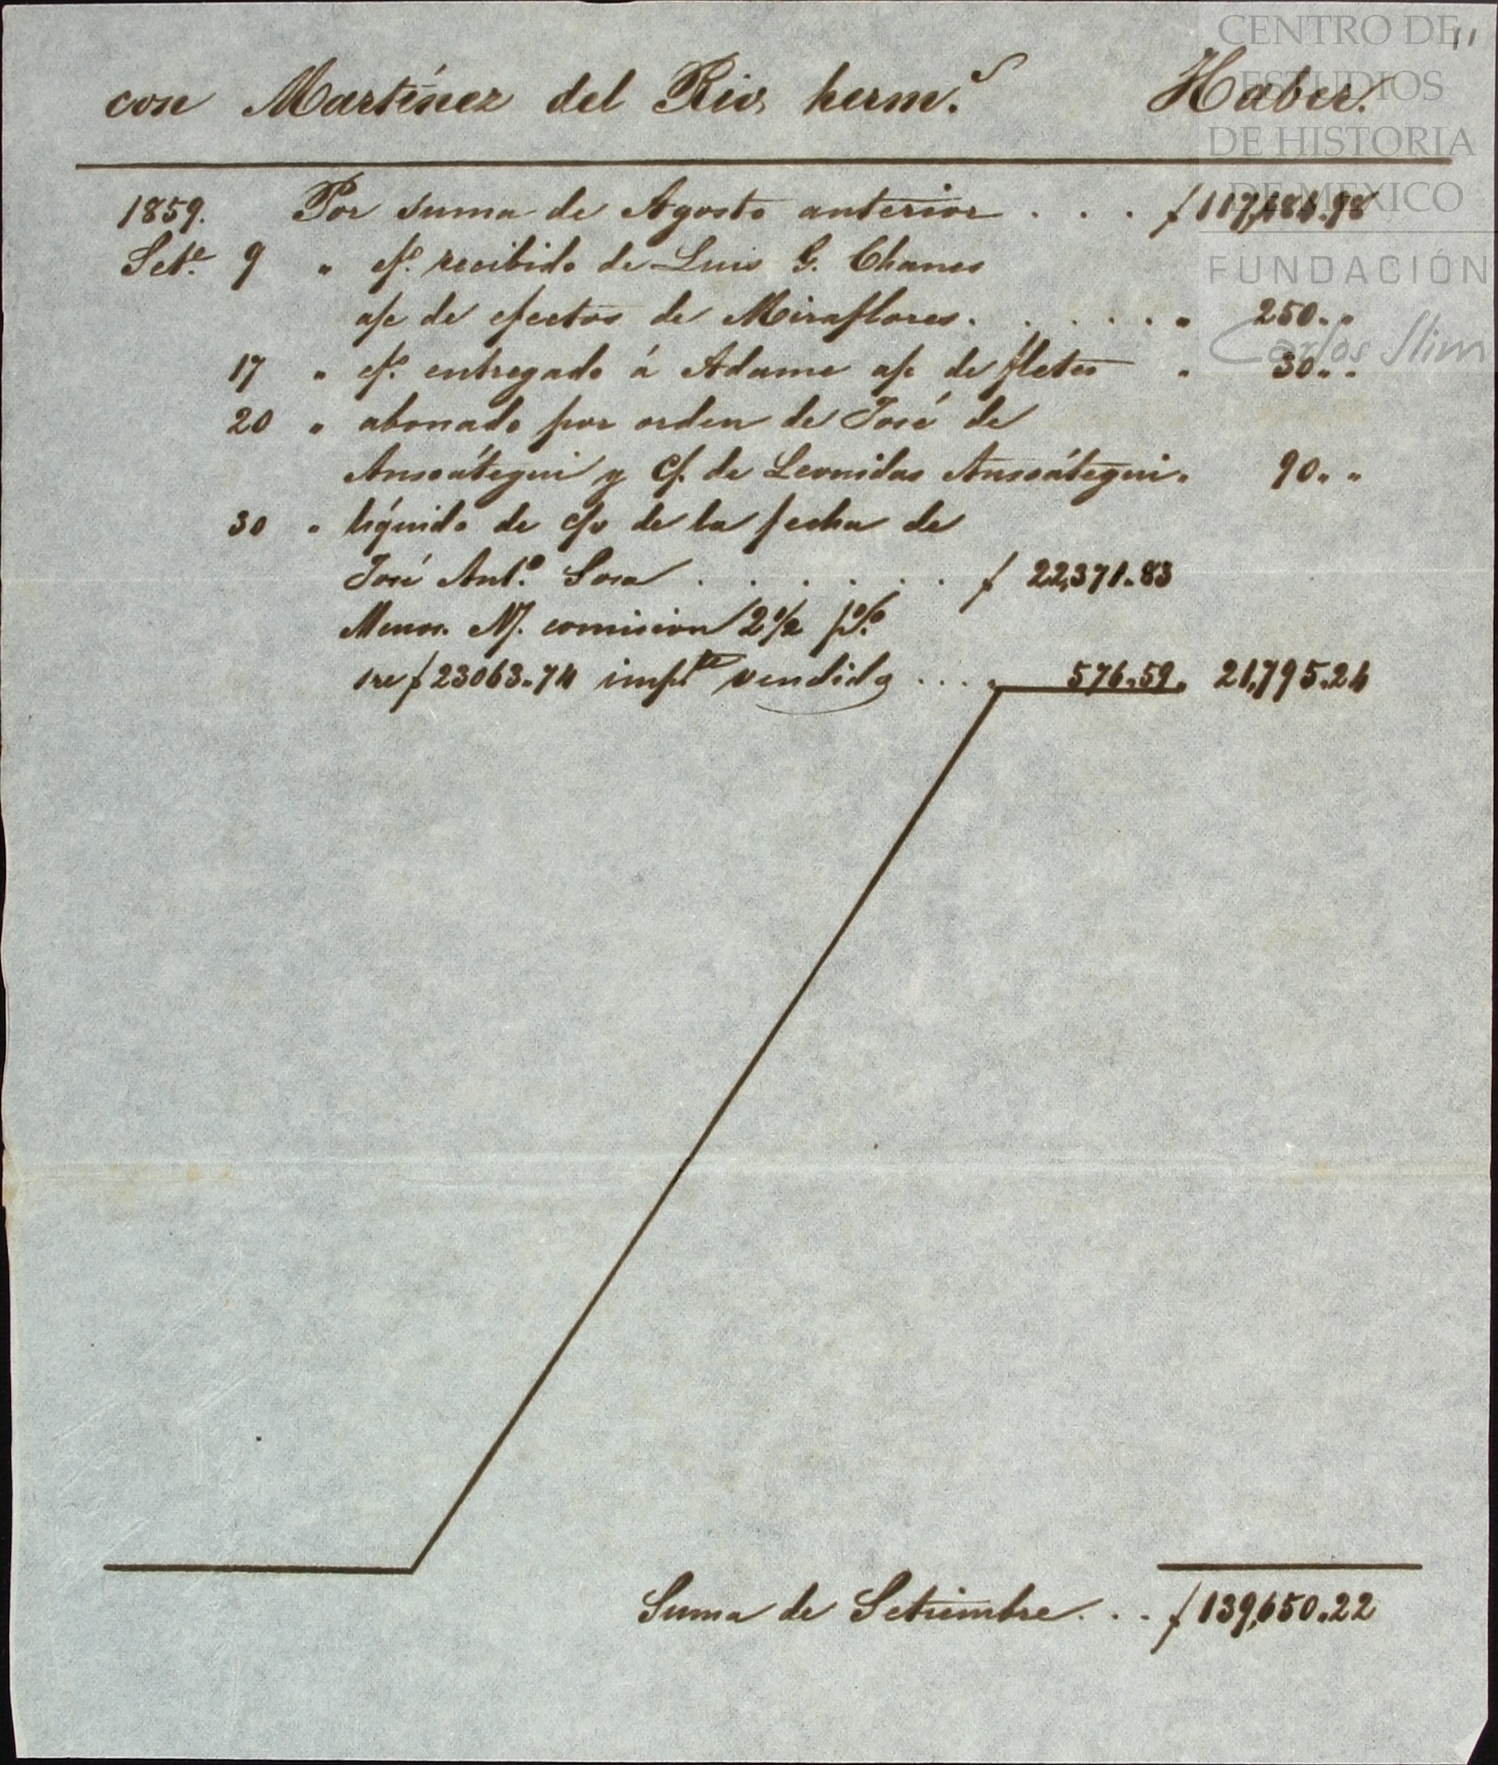 CENTRO DE
ESTUDIOS
DE HISTORIA
DE MEXICO
FUNDACIÓN
Carlos Slim
11
con Martínez del Rio herm.s Haber.
1859. Por suma de Agosto anterior . . . $ 117,484.98
Set.e 9 " ef.o recibido de Luis G. Chanes
a/c de efectos de Miraflores. . . . . . " 250. "
17 " ef.o entregado á Adame a/c de fletes " 30. "
20 " abonado por orden de José de
Ansoátegui y C/. de Leonidas Ansoátegui. 90. "
30 " líquido de c/v de la fecha de
José Ant.o Sosa . . . . . . $ 22,371.83
Menos. N/. comision 2 1/2 p%
sre $ 23063.74 imp.te vendido . . . " 576.59. 21,795.24
Suma de Setiembre. . . $ 139,650.22